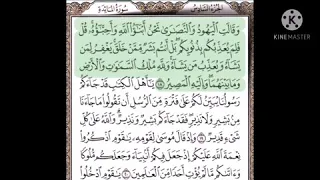 الجزء السادس سورة المائدة
KINEMASTER
وَقَالَتِ ٱلْيَهُودُ وَٱلنَّصَٰرَىٰ نَحْنُ أَبْنَٰٓؤُا۟ ٱللَّهِ وَأَحِبَّٰٓؤُهُۥ ۚ قُلْ
فَلِمَ يُعَذِّبُكُم بِذُنُوبِكُم ۖ بَلْ أَنتُم بَشَرٌ مِّمَّنْ خَلَقَ ۚ يَغْفِرُ لِمَن
يَشَآءُ وَيُعَذِّبُ مَن يَشَآءُ ۚ وَلِلَّهِ مُلْكُ ٱلسَّمَٰوَٰتِ وَٱلْأَرْضِ
وَمَا بَيْنَهُمَا ۖ وَإِلَيْهِ ٱلْمَصِيرُ ١٨ يَٰٓأَهْلَ ٱلْكِتَٰبِ قَدْ جَآءَكُمْ
رَسُولُنَا يُبَيِّنُ لَكُمْ عَلَىٰ فَتْرَةٍ مِّنَ ٱلرُّسُلِ أَن تَقُولُوا۟ مَا جَآءَنَا
مِنۢ بَشِيرٍ وَلَا نَذِيرٍ ۖ فَقَدْ جَآءَكُم بَشِيرٌ وَنَذِيرٌ ۗ وَٱللَّهُ عَلَىٰ كُلِّ
شَىْءٍ قَدِيرٌ ١٩ وَإِذْ قَالَ مُوسَىٰ لِقَوْمِهِۦ يَٰقَوْمِ ٱذْكُرُوا۟
نِعْمَةَ ٱللَّهِ عَلَيْكُمْ إِذْ جَعَلَ فِيكُمْ أَنۢبِيَآءَ وَجَعَلَكُم مُّلُوكًا
وَءَاتَىٰكُم مَّا لَمْ يُؤْتِ أَحَدًا مِّنَ ٱلْعَٰلَمِينَ ٢٠ يَٰقَوْمِ ٱدْخُلُوا۟